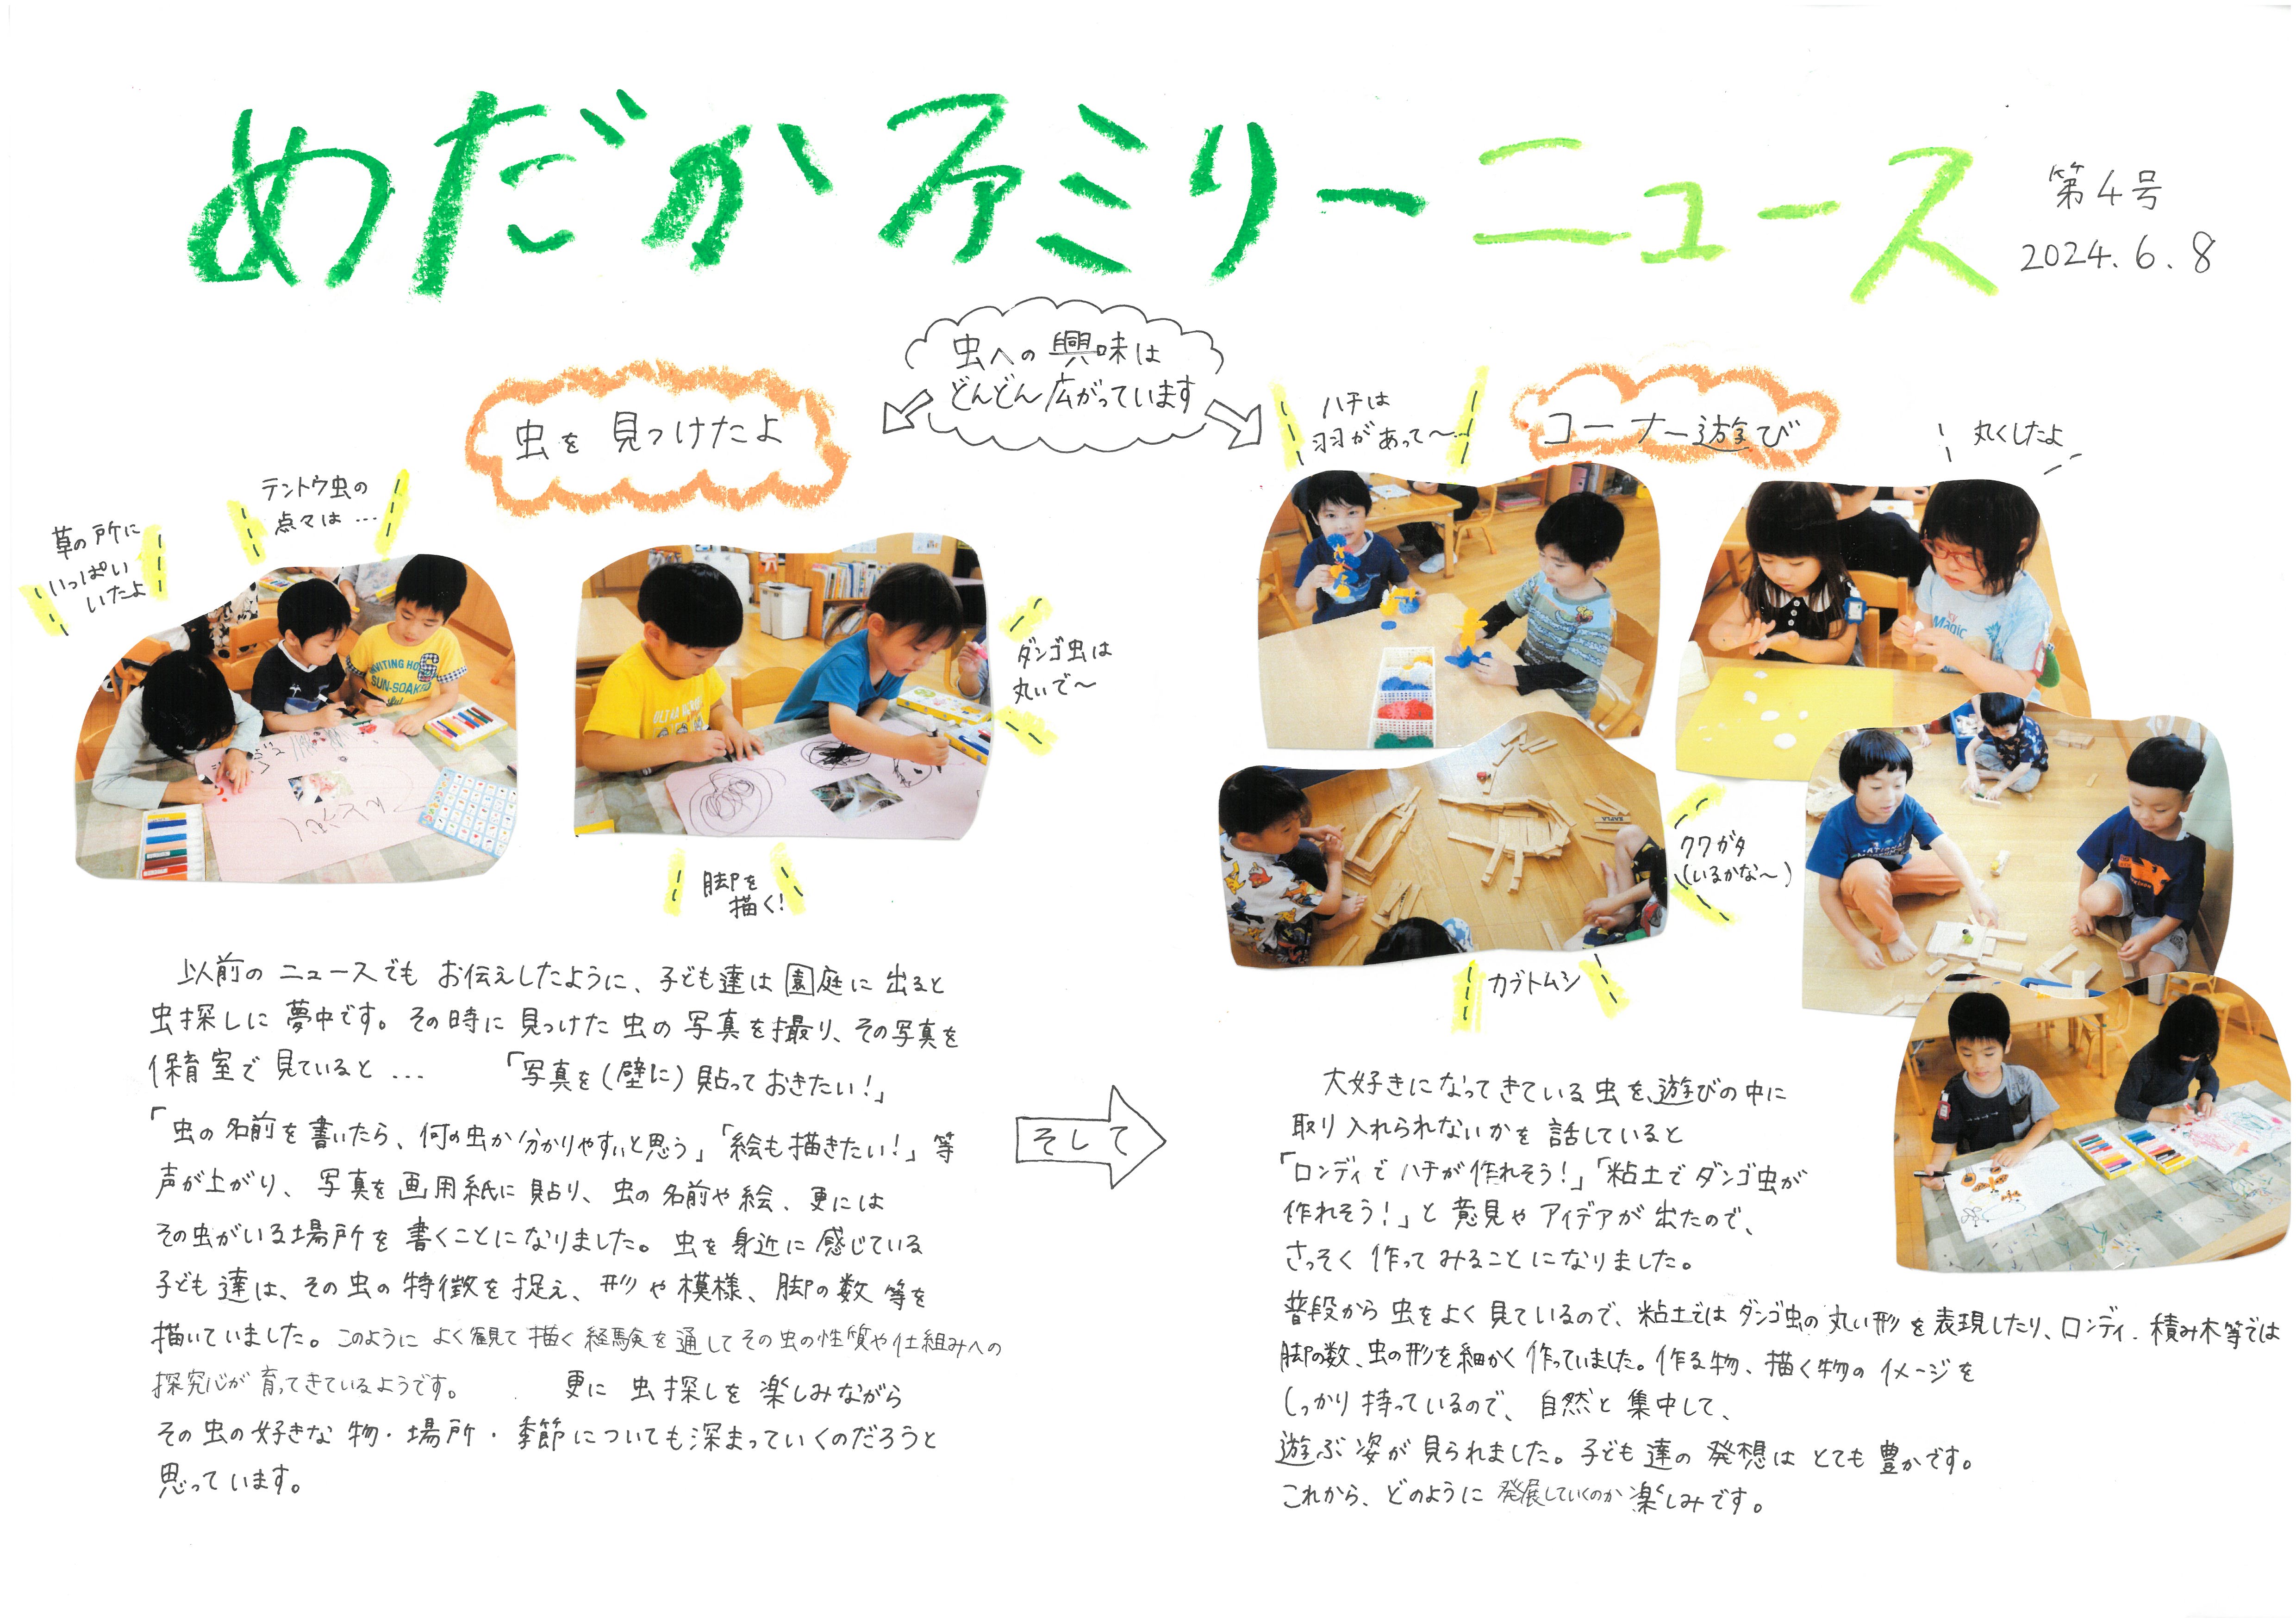 めだかファミリーニュース
第4号
2024.6.8
虫への興味は
どんどん広がっています
虫を見つけたよ
草の所に
いっぱい
いたよ
テントウ虫の
点々は…
ダンゴ虫は
丸いで～
脚を
描く!
以前のニュースでもお伝えしたように、子ども達は園庭に出ると
虫探しに夢中です。その時に見つけた虫の写真を撮り、その写真を
保育室で見ていると… 「写真を(壁に)貼っておきたい!」
「虫の名前を書いたら、何の虫か分かりやすいと思う」「絵も描きたい!」等
声が上がり、写真を画用紙に貼り、虫の名前や絵、更には
その虫がいる場所を書くことになりました。虫を身近に感じている
子ども達は、その虫の特徴を捉え、形や模様、脚の数等を
描いていました。このようによく観て描く経験を通してその虫の性質や仕組みへの
探究心が育ってきているようです。 更に虫探しを楽しみながら
その虫の好きな物・場所・季節についても深まっていくのだろうと
思っています。
そして
コーナー遊び
ハチは
羽があって～…
丸くしたよ
クワガタ
(いるかな～)
カブトムシ
INVITING HO
SUN-SOAK
Magic
KAPLA
大好きになってきている虫を遊びの中に
取り入れられないかを話していると
「ロンディでハチが作れそう!」「粘土でダンゴ虫が
作れそう!」と意見やアイデアが出たので、
さっそく作ってみることになりました。
普段から虫をよく見ているので、粘土ではダンゴ虫の丸い形を表現したり、ロンディ、積み木等では
脚の数、虫の形を細かく作っていました。作る物、描く物のイメージを
しっかり持っているので、自然と集中して、
遊ぶ姿が見られました。子ども達の発想はとても豊かです。
これから、どのように発展していくのか楽しみです。